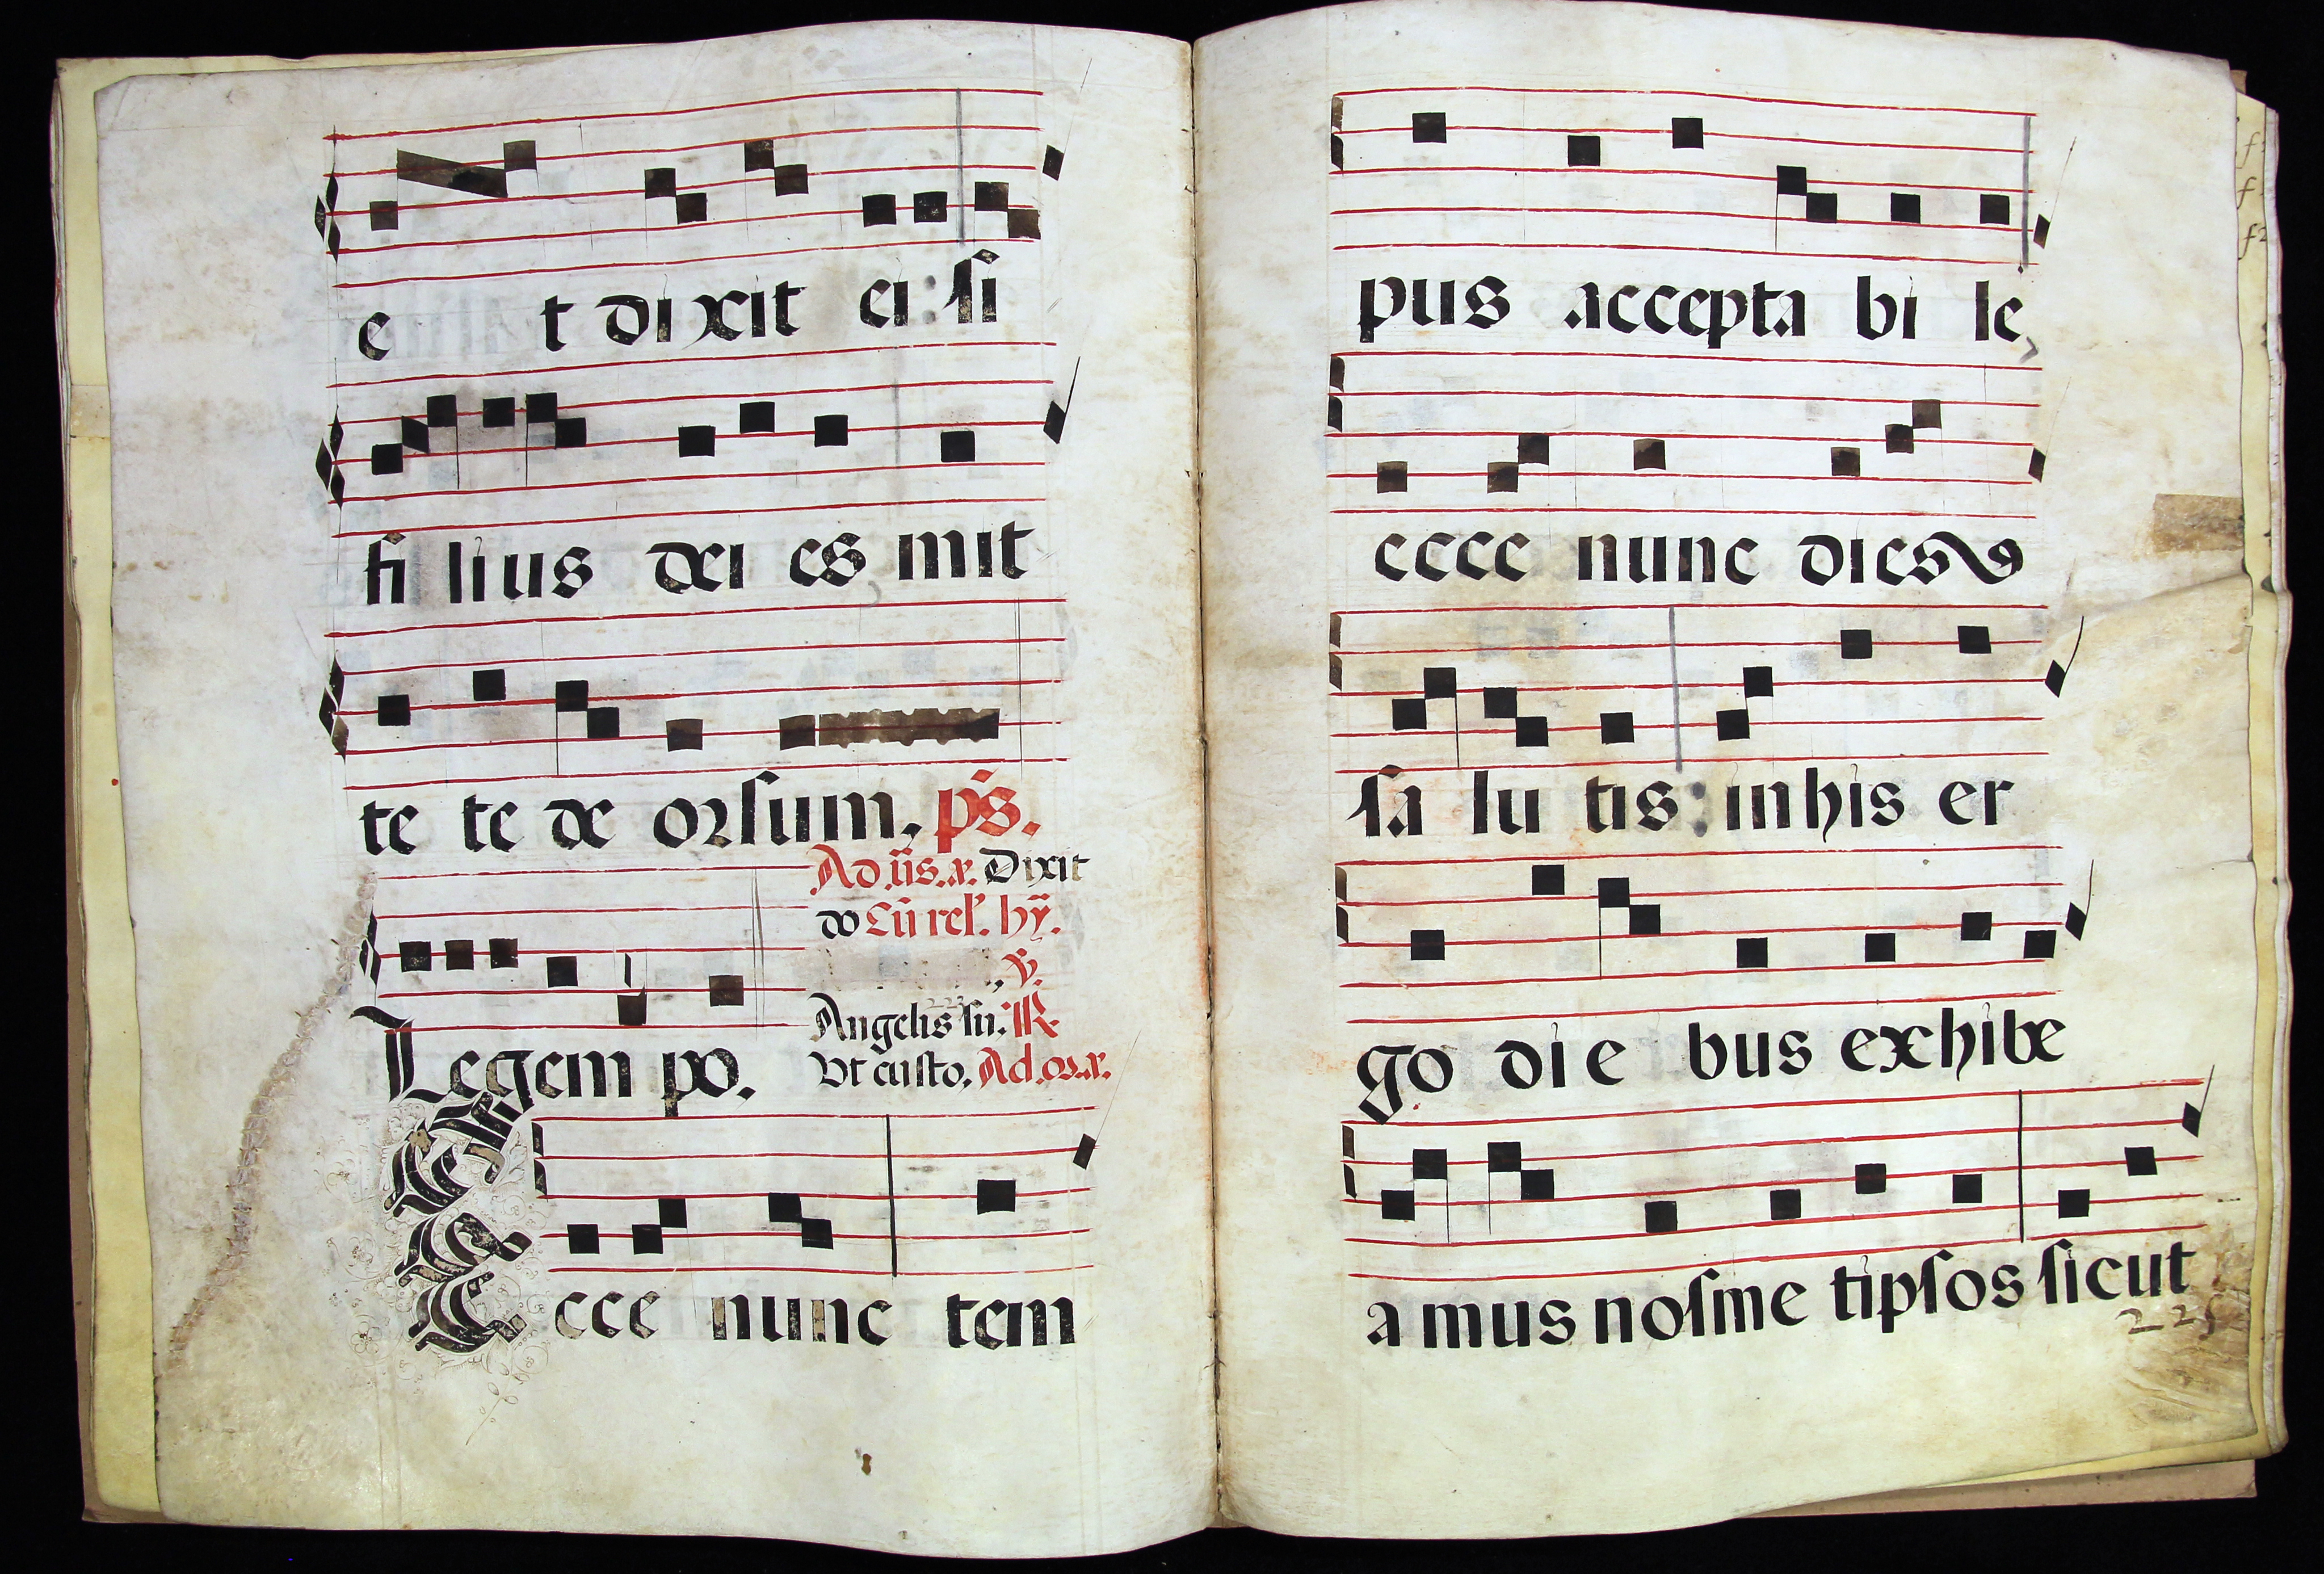 e t di xit ei: si
fi li us dei es mit
te te de orsum, ps̄.
Ad .iīs. ā. Dixit
do Cū rel'. hȳ.
, v̄.
223
Angelis su. ℟
Legem po.
Vt custo, Ad. oz. ā.
E cce nunc tem
pus accepta bi le,
ecce nunc dies
sa lu tis: in his er
go di e bus exhibe
a mus nosme tipsos sicut
225
f
f
f2